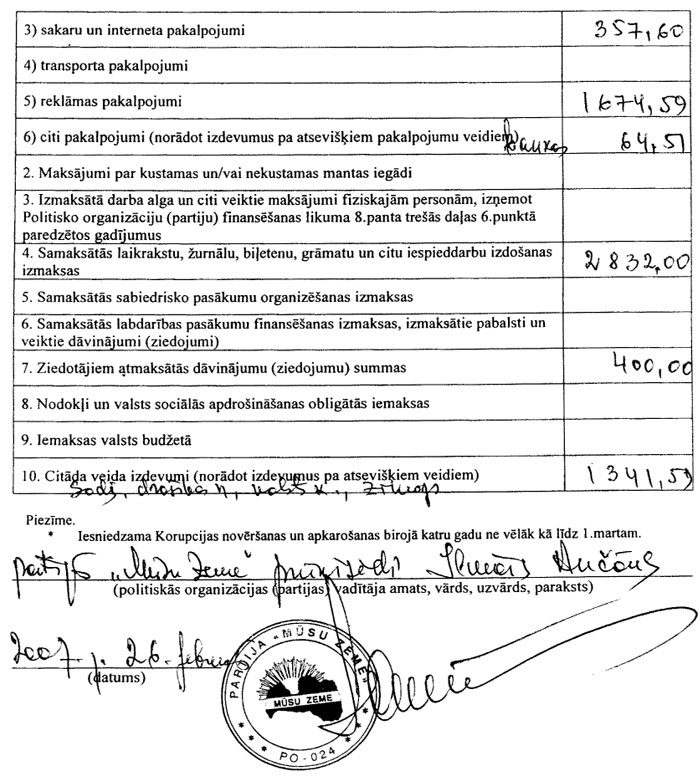 3) sakaru un interneta pakalpojumi 357,60
4) transporta pakalpojumi
5) reklāmas pakalpojumi 1674,59
6) citi pakalpojumi (norādot izdevumus pa atsevišķiem pakalpojumu veidiem) 64,51
2. Maksājumi par kustamas un/vai nekustamas mantas iegādi
3. Izmaksātā darba alga un citi veiktie maksājumi fiziskajām personām, izņemot
Politisko organizāciju (partiju) finansēšanas likuma 8.panta trešās daļas 6.punktā
paredzētos gadījumus
4. Samaksātās laikrakstu, žurnālu, biļetenu, grāmatu un citu iespieddarbu izdošanas
izmaksas 2832,00
5. Samaksātās sabiedrisko pasākumu organizēšanas izmaksas
6. Samaksātās labdarības pasākumu finansēšanas izmaksas, izmaksātie pabalsti un
veiktie dāvinājumi (ziedojumi)
7. Ziedotājiem atmaksātās dāvinājumu (ziedojumu) summas 400,00
8. Nodokļi un valsts sociālās apdrošināšanas obligātās iemaksas
9. Iemaksas valsts budžetā
10. Citāda veida izdevumi (norādot izdevumus pa atsevišķiem veidiem) 1341,59
Piezīme.
* Iesniedzama Korupcijas novēršanas un apkarošanas birojā katru gadu ne vēlāk kā līdz 1.martam.
"Mūsu Zeme"
(politiskās organizācijas (partijas) vadītāja amats, vārds, uzvārds, paraksts)
2007. g. 26. februāri
(datums)
PARTIJA «MŪSU ZEME»
MŪSU ZEME
* * * PO-024 * * *